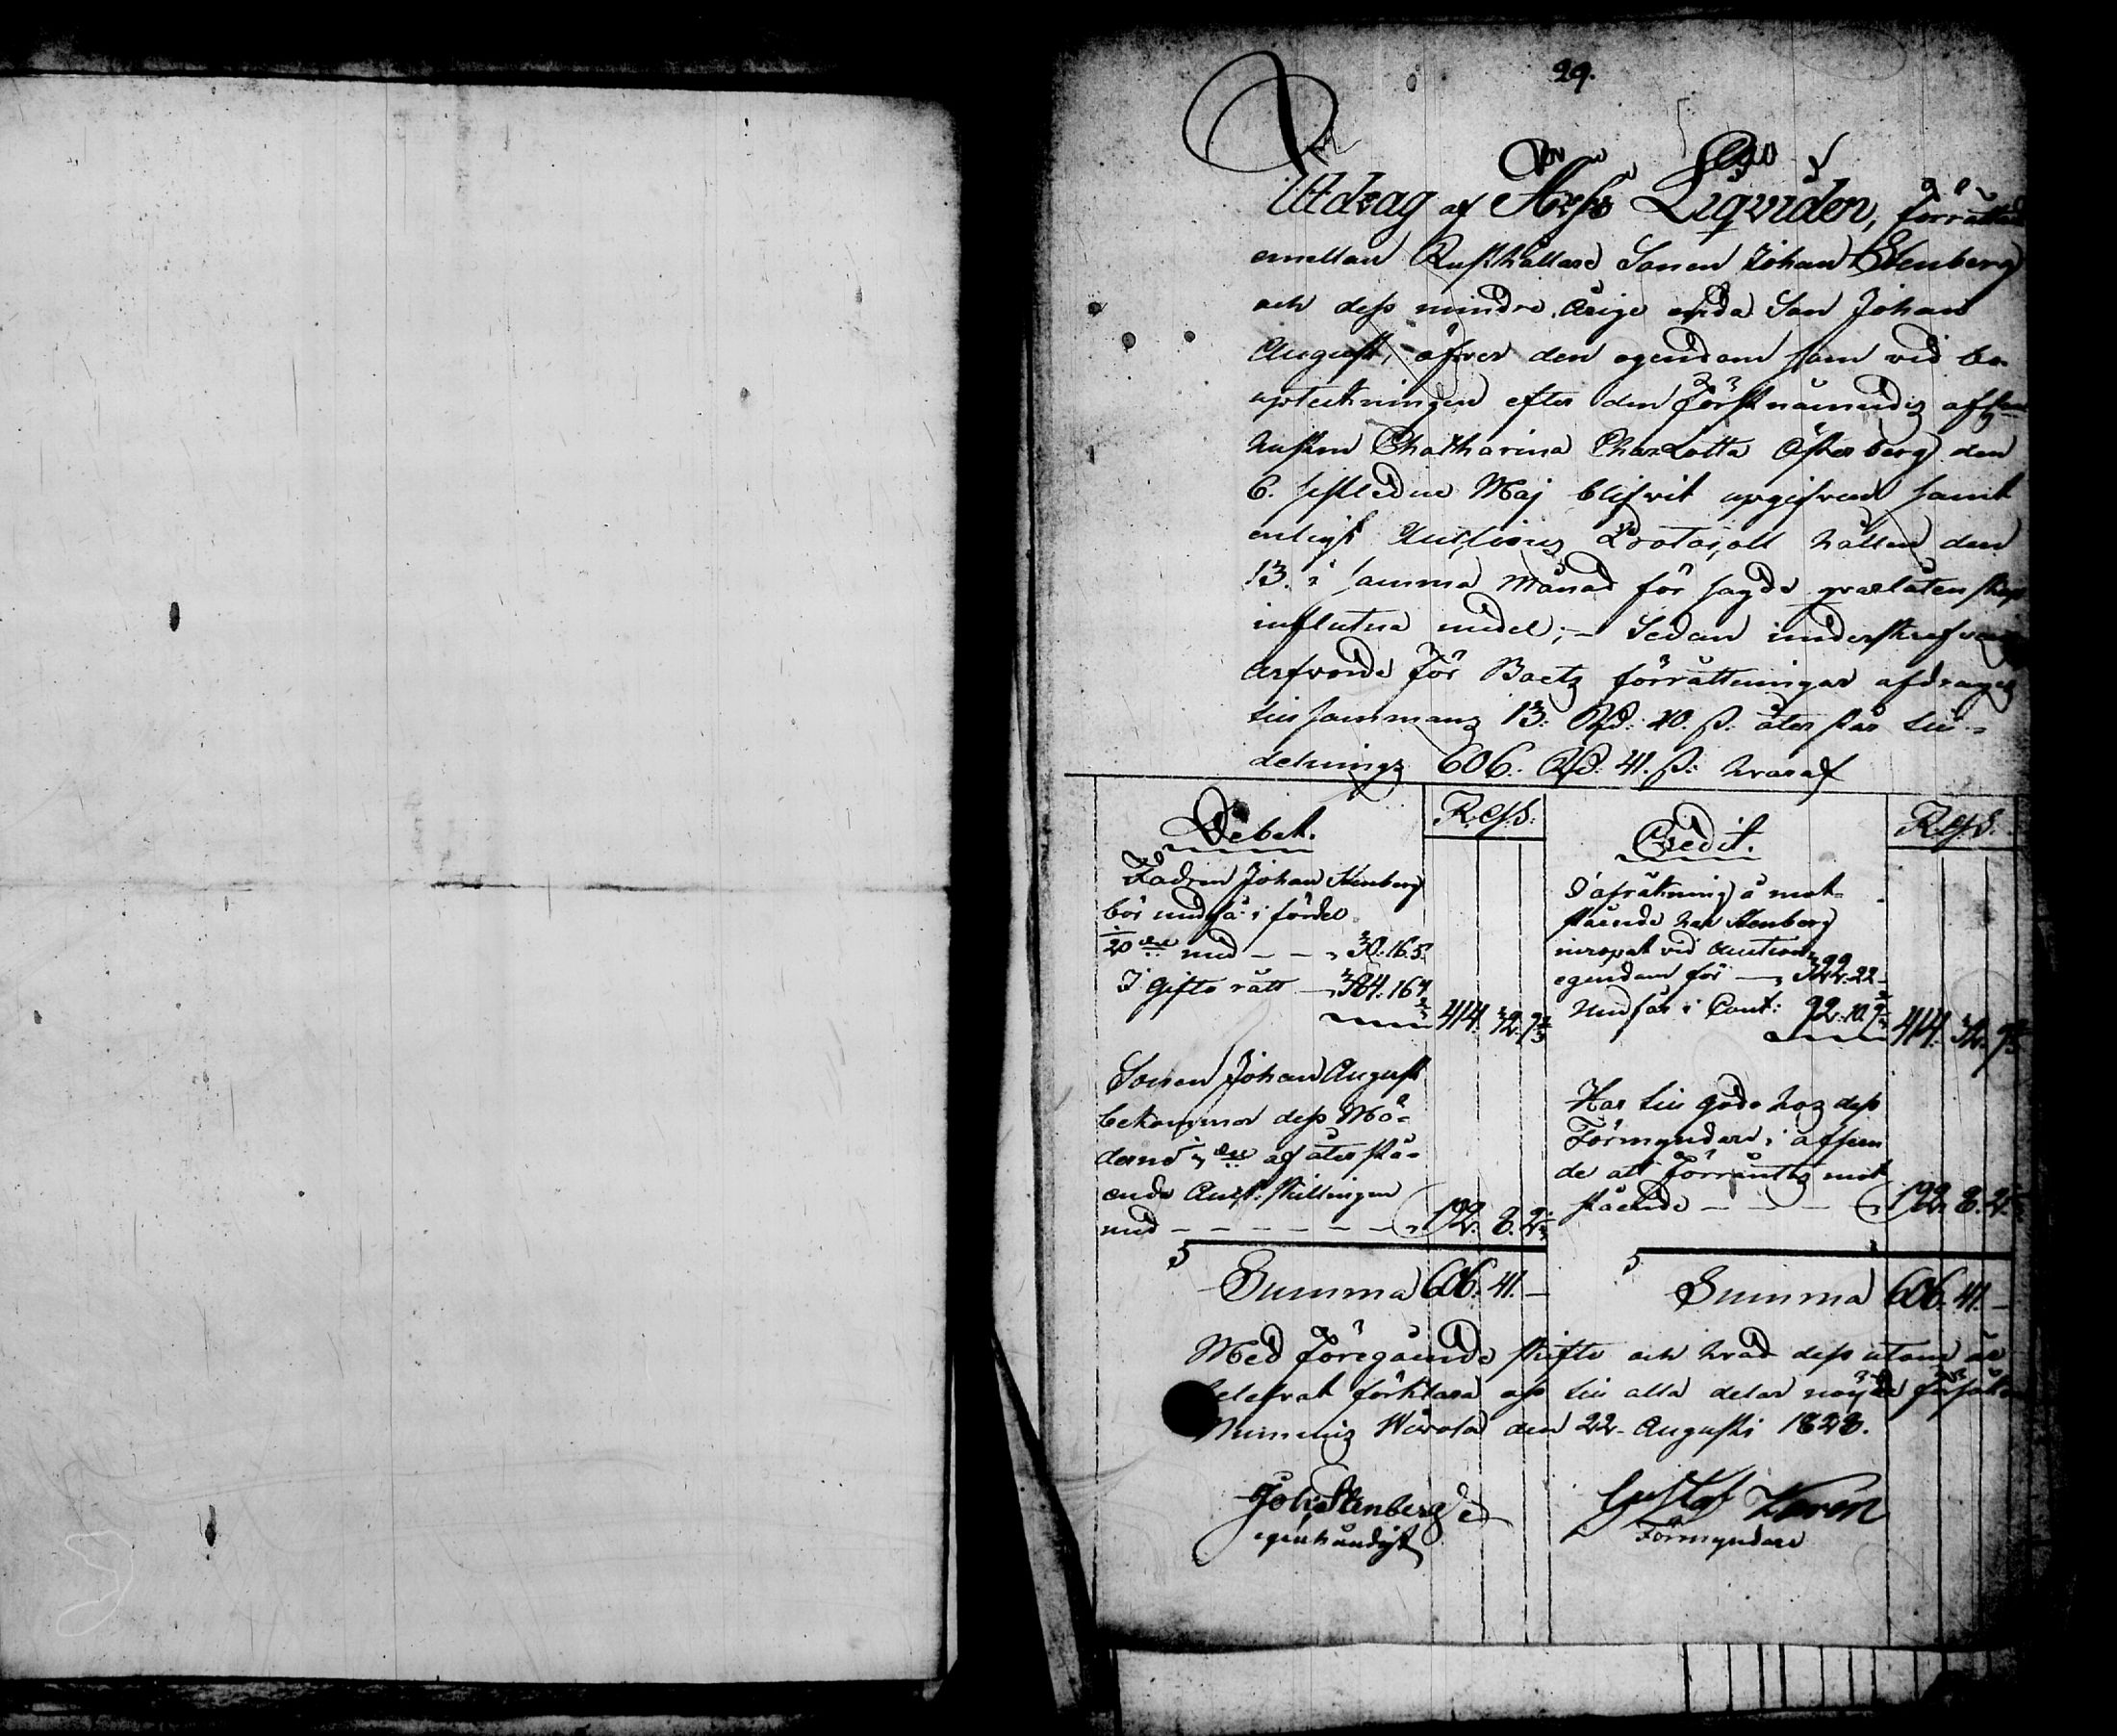 29.
Utdrag af Arfs Liqviden, förrättad
emellan Rusthållare Sonen Johan Stenberg
och dess mindre årige enda Son Johan
August, öfver den egendom som vid bo
upteckningen efter den förstnämndes afledne
Hustru Chatharina Charlotta Österberg den
6. sistledne Maj blifvit upgifven samt
enligt Auctions Protocoll hållen den
13. i samma Månad för sagde qvarlåtenskap
influtna medel; – Sedan underskrefvne
arfvode för Boets förrättningar afdrages
tillsammans 13: Rd: 40. ß. återstår till
delnings 606. Rd: 41. ß: hvaraf
Debet.
R. ß. S:
Fadren Johan Stenberg
bör undfå i fördel
1/20 del med – – 30. 16. 5.
I Gifto rätt – 384. 16
414. 32.
Sonen Johan August
bekommer dess Mö-
derne 1/3 del af återstå-
ende Auct. skillingen
med – – – – – – 192. 8. 2
Summa 606. 41. –
Credit.
R. ß. S.
I afräkning å mot-
stående har Stenberg
inropat vid Auction
egendom för – 322. 22 –
Undfår i Cont: 92. 10.
414. 32.
Har till godo hos dess
Förmyndare i afseen
de att förräntas mot
stående – – – – 192. 8. 2
Summa 606. 41. –
Med föregående skifte och hvad dess utom är
lefvat förklara oss till alla delar nöjde försäkra
Nummis Wärola den 22. Augusti 1828.
Joh: Stenberg
egenhändigt
Gustaf Karen
Förmyndare